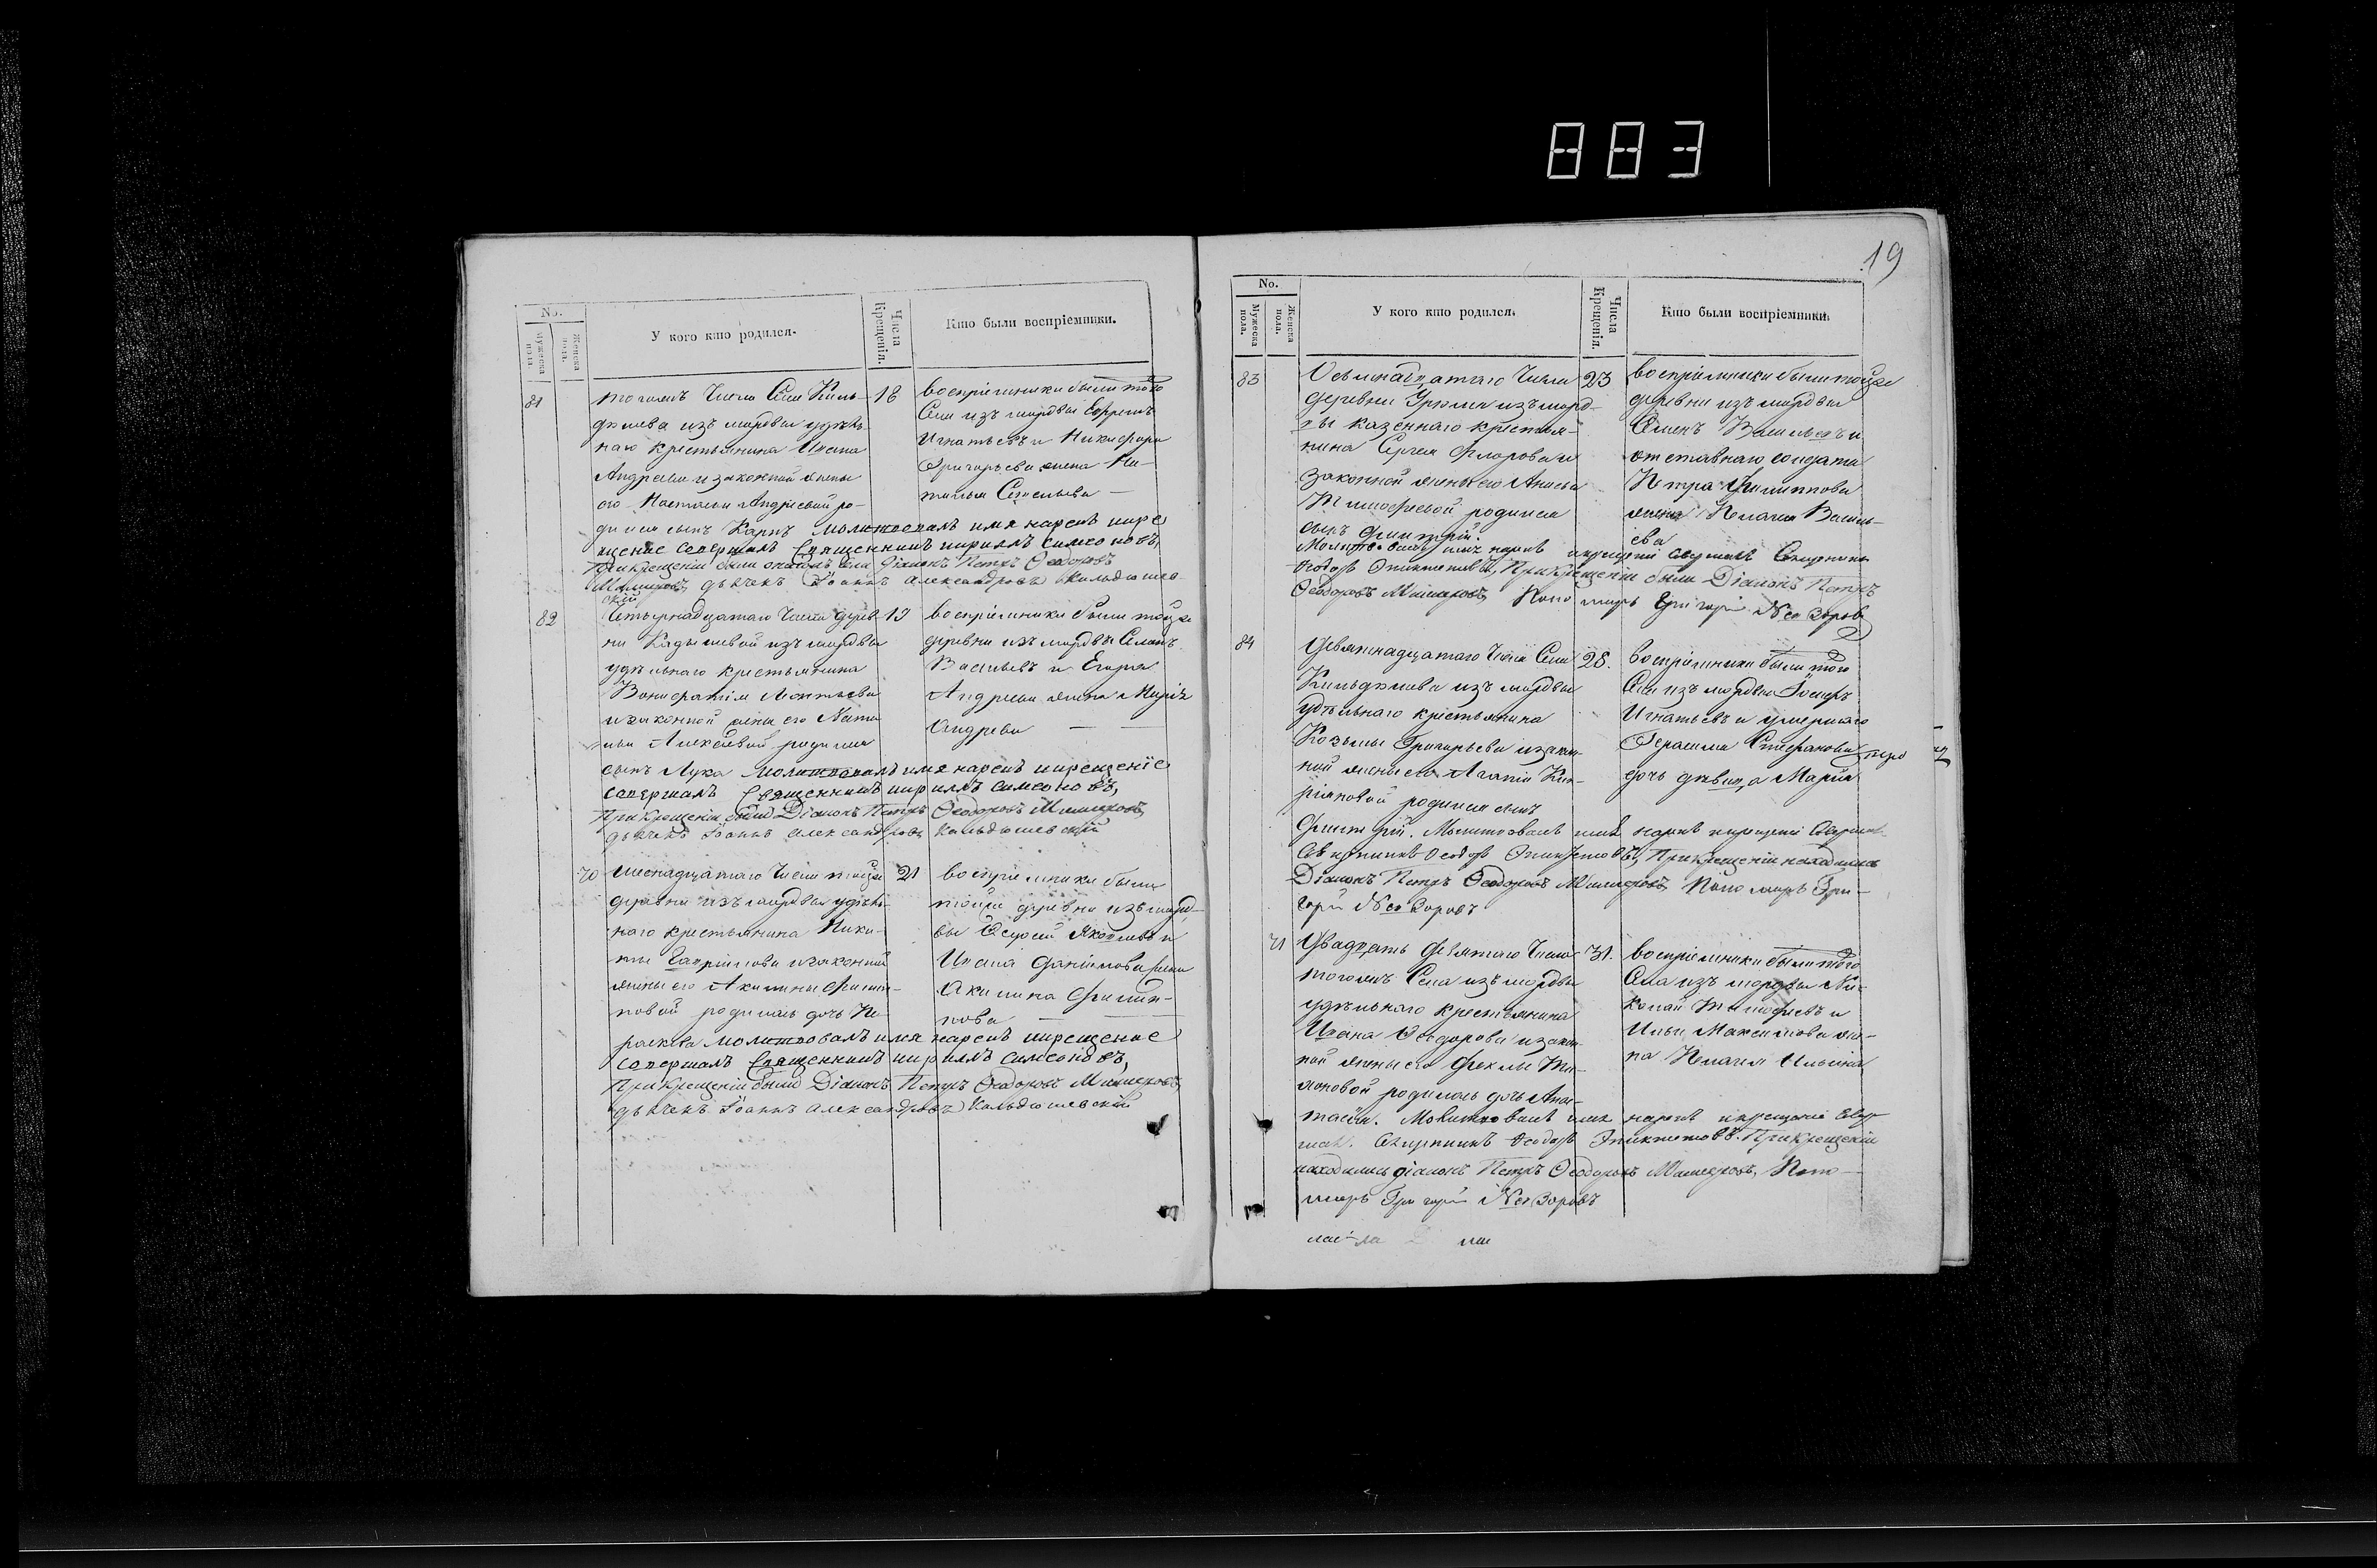 883
19
No.
Мужеска пола
Женска пола.
У кого кто родился.
Числа Крещенія.
Кто были воспріемники.
81
тогожъ Числа Села Киль-
дюшева изъ мордвы удѣль-
наго крестьянина
Андреева и законной жены
его Настасьи Андреевой ро-
дился сынъ Карпъ молитвовалъ имя нарекъ икре
щеніе совершалъ Священникъ кириллъ Симеоновъ,
Прикрещеніи были Діаконъ Петръ Ѳеодоровъ
дьячекъ Іоаннъ Александровъ Кильдюшев-
скій
18
воспріемники были того
Села изъ мордвы Ефремъ
Игнатьевъ и Никифора
Григорьева жена На-
талья Савельева
82
Четырнадцатаго Числа дерев-
ни Кадышевой изъ мордвы
удѣльнаго крестьянина
Вонифатія Леонтьева
изаконной жены его Ната-
льи Алексѣевой родился
сынъ Лука молитвовалъ имя нарекъ икрещеніе
совершалъ Священникъ кириллъ Симеоновъ,
Прикрещеніи были Діаконъ Петръ Ѳеодоровъ
дьячекъ Іоаннъ Александровъ Кильдюшевскій
19
воспріемники были тойже
деревни изъ мордвы Семенъ
Васильевъ и Егора
Андреева жена Марія
Андреева
70
шеснадцатаго Числа тойже
деревни изъ мордвы удѣль-
наго крестьянина Ники-
ты Гаврилова изаконной
жены его Акилины Филип-
повой родилась дочь Па-
раскева молитвовалъ имя нарекъ икрещеніе
совершалъ Священникъ кириллъ Симеоновъ,
Прикрещеніи были Діаконъ Петръ Ѳеодоровъ
дьячекъ Іоаннъ Александровъ Кильдюшевскій
21
воспріемники были
тойже деревни изъ морд-
вы Яковлевъ и
Ивана Данилова жена
Акилина Филип-
пова
No.
Мужеска пола.
Женска пола.
У кого кто родился.
Числа Крещенія.
Кто были воспріемники.
83
Осьмнадцатаго Числа
деревни Урюма изъ морд-
вы казеннаго крестья-
нина Сергея Флорова и
законной жены его Анисьи
Тимофеевой родился
сынъ Димитрій.
Молитвовалъ имя нарекъ икрещеніе совершалъ Священникъ
Ѳеодоръ Эпиктетовъ, Прикрещеніи были Діаконъ Петръ
Ѳеодоровъ Пономарь Григорій Невзоровъ
23
воспріемники были тойже
деревни изъ мордвы
Семенъ Васильевъ и
отставнаго солдата
Петра Филиппова
жена Пелагея Василь-
ева
84
Девятнадцатаго Числа Села
Кильдюшева изъ мордвы
Удѣльнаго крестьянина
Козьмы Григорьева изакон-
ной жены его Агапіи Кип-
ріяновой родился сынъ
Димитрій. Молитвовалъ имя нарекъ икрещеніе совершалъ
Священникъ Ѳеодоръ Эпиктетовъ, Прикрещеніи находились
Діаконъ Петръ Ѳеодоровъ Пономарь Гри-
горій Невзоровъ
28.
воспріемники были того
Села изъ мордвы
Игнатьевъ и умершаго
Герасима Стефанова
дочь дѣвица Марія
71
Двадцать девятаго Числа
тогожъ Села изъ мордвы
удѣльнаго крестьянина
Ивана Ѳеодорова изакон-
ной жены его Феклы Ти-
моновой родилась дочь Анас-
тасія. Молитвовалъ имя нарекъ икрещеніе совер-
шалъ. Священникъ Ѳеодоръ Эпиктетовъ. Прикрещеніи
находились діаконъ Петръ Ѳеодоровъ Поно-
марь Григорій Невзоровъ
31.
воспріемники были того
Села изъ мордвы Ни-
колай Тимофеевъ и
Ильи Максимова же-
на Пелагея Ильина